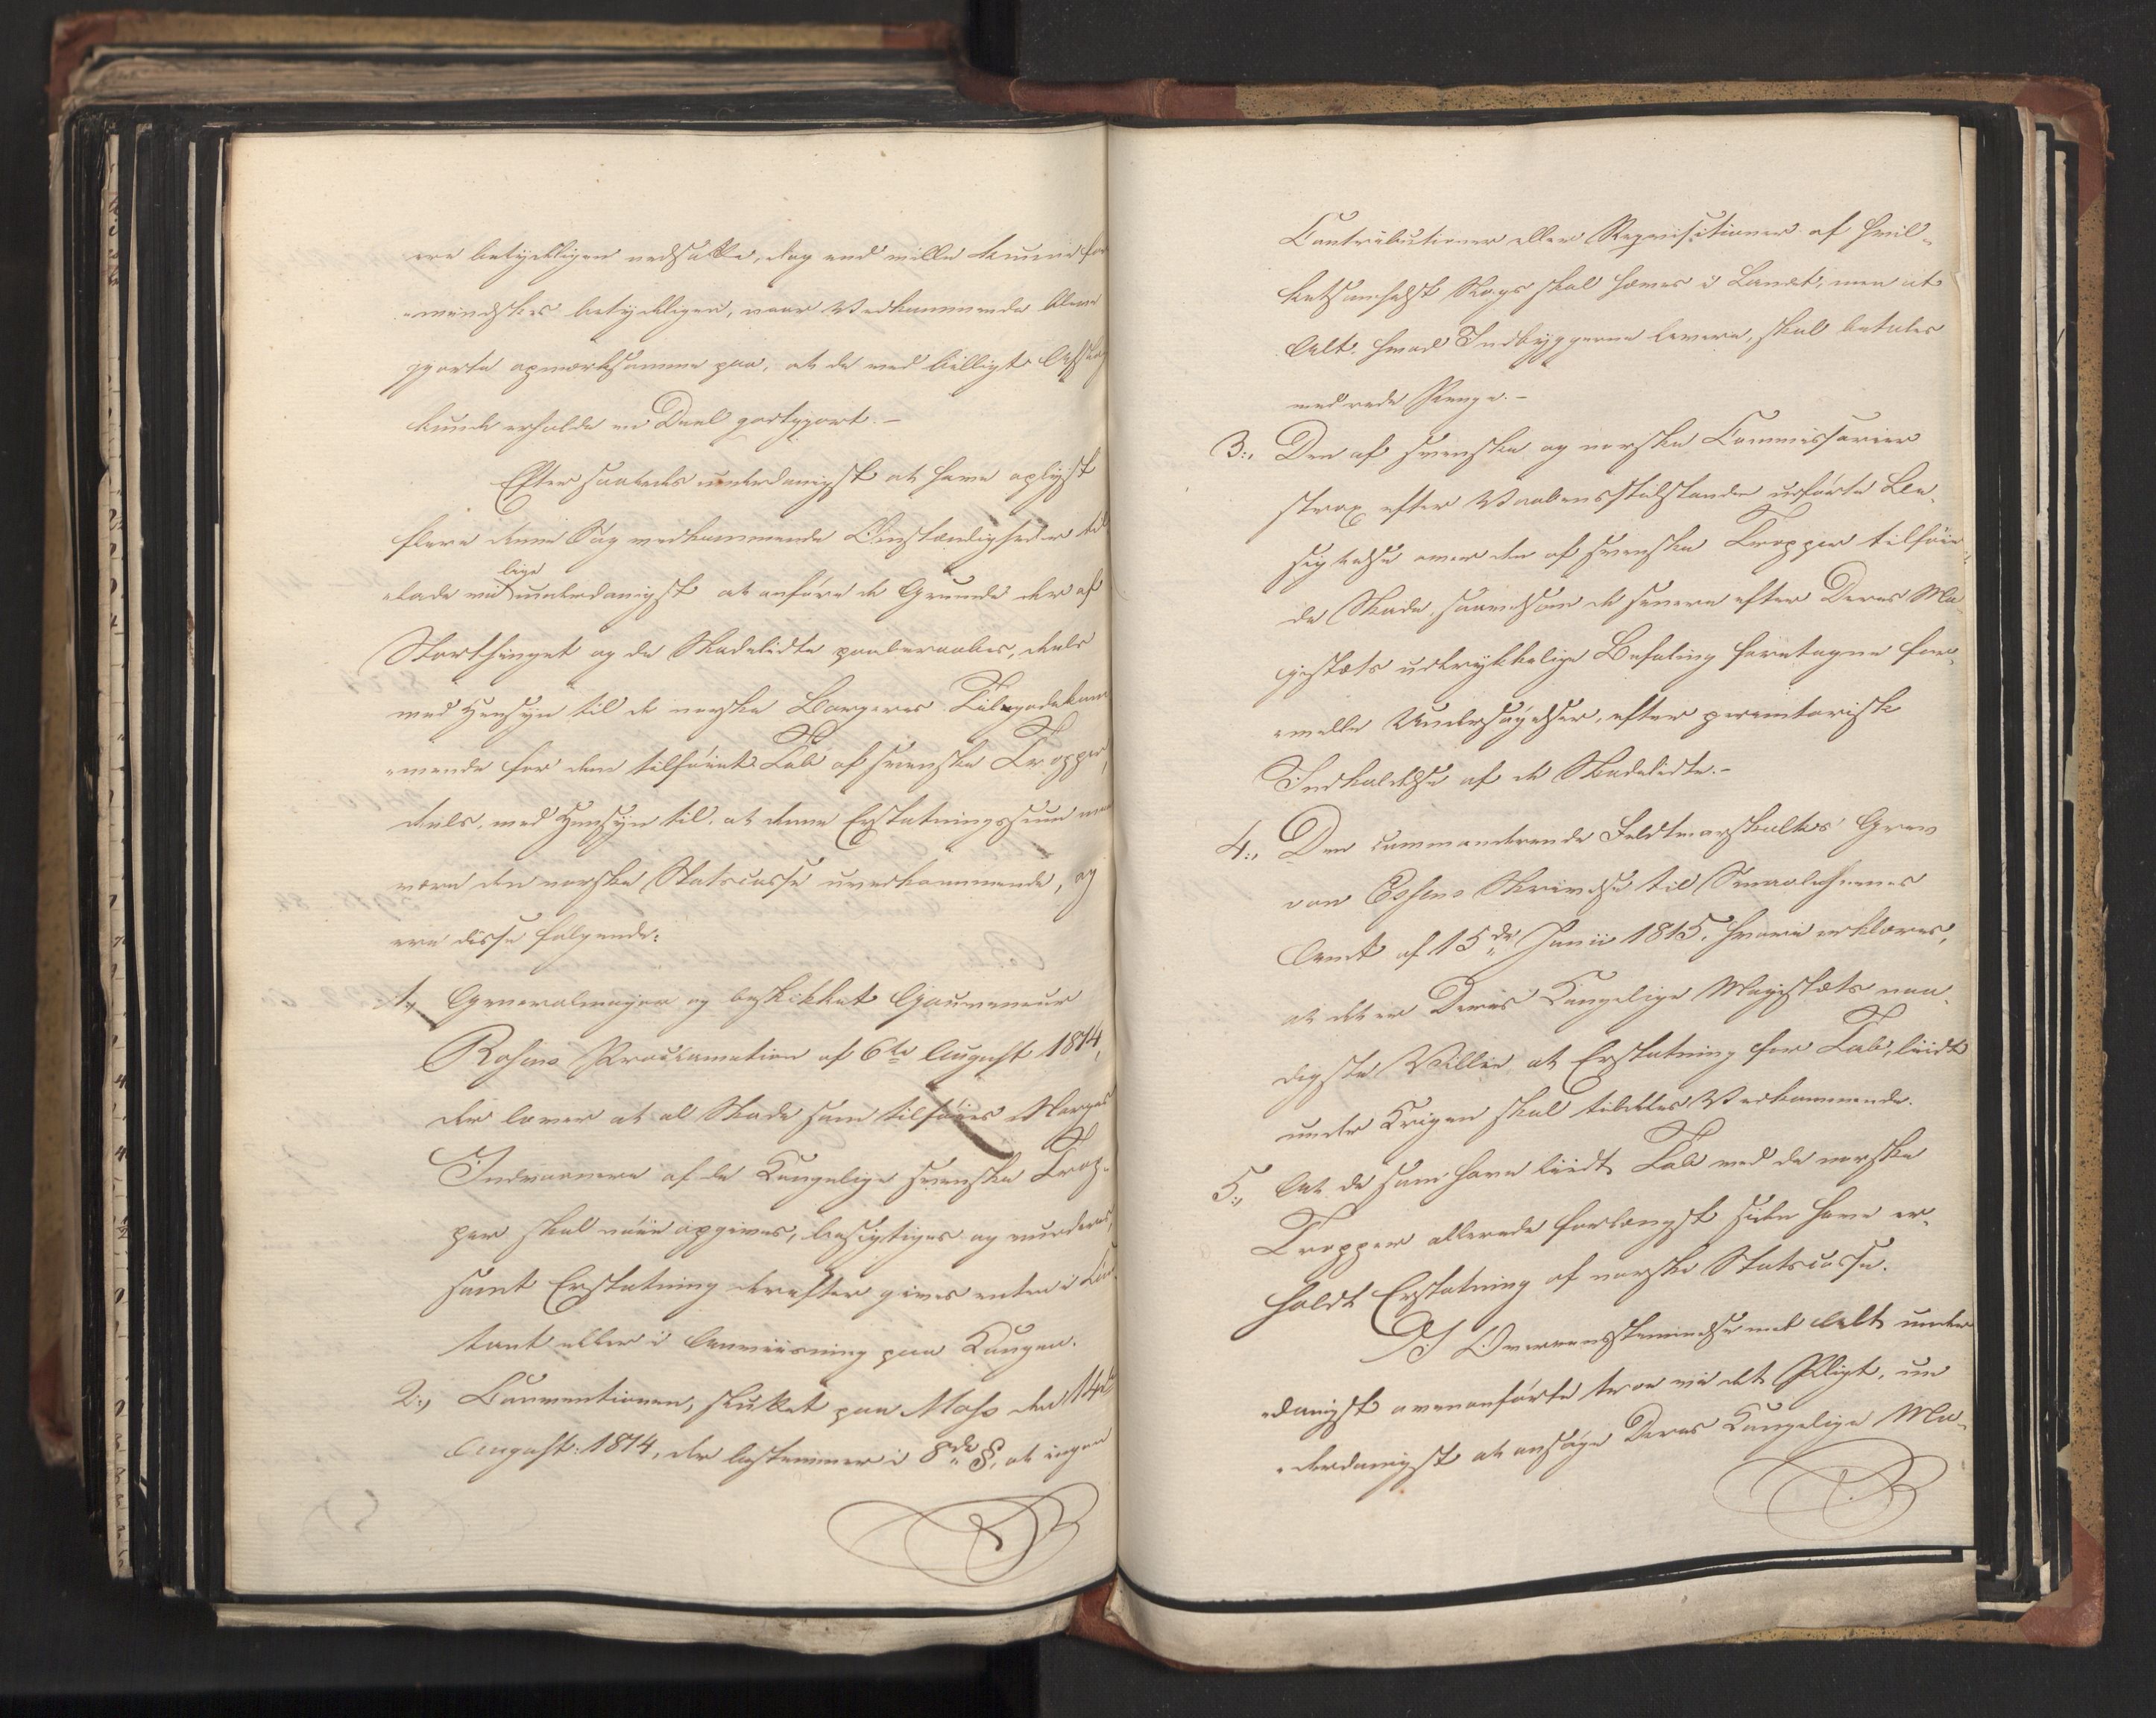 ere betydeligen nedsatte, dog end mille kunne for
„mindskes betydeligen, naar Vedkommende bleve
gjorte opmærksomme paa, at de med billigt Afslag
kunde erholde en Deel godtgjort.-
Efter saaledes underdanigst at have oplyst
flere denne Sag vedkommende Omstændigheder til
„lade vi lige underdanigst at anføre de Grunde der af
Storthinget og de Skadelidte paaberaabes, deels
med Hensyn til de norske Borgeres Tilgodekom
„mende for dem tilføiet Tab af svenske Tropper,
deels, med Hensyn til, at denne Erstatningssum maa
være den norske Statscasse uvedkommende, og
ere disse følgende:
1, Generalmajor og beskikket Gouverneur
Rosens Proclamation af 6te August 1814,
der lover at al Skade som tilføies Norges
Indvaanere af de Kongelige svenske Trop-
per skal nøie opgives, besigtiges og vurderes,
samt Erstatning derefter gives enten i Con-
tant eller i Anviisning paa Kongen.
2:, Conventionen, sluttet paa Moss den 14de
August: 1814, der bestemmer i 8de §, at ingen
Contributioner eller Reqvisitioner af hvil-
ketsomhelst Slags skal hæves i Landet, men at
Alt, hvad Indbyggerne levere, skal betales
med rede Penge.-
3:, Den af svenske og norske Commissarier
strax efter Vaabenstilstanden udførte Be-
sigtelse over den af svenske Tropper tilføie-
de Skade, saavelsom de senere efter Deres Ma-
jestæts udtrykkelige Befaling foretagne for-
„melle Undersøgelser, efter peremtorisk
Indkaldelse af de Skadelidte.-
4:, Den commanderende Feldtmarskalks Grev
von Essens Skrivelse til Smaalehnenes
Amt af 15de Junii 1815. hvori erklæres,
at det er Deres Kongelige Majestæts naa-
digste Villie, at Erstatning for Tab, liidt
under Krigen skal tildeles Vedkommende.
5:, At de som have liidt Tab ved de norske
Tropper allerede forlængst siden have er-
holdt Erstatning af norske Statscasse.
I Overeensstemmelse med Alt under
„danigst ovenanførte troe vi det Pligt, un
„derdanigst at ansøge Deres Kongelige Ma-